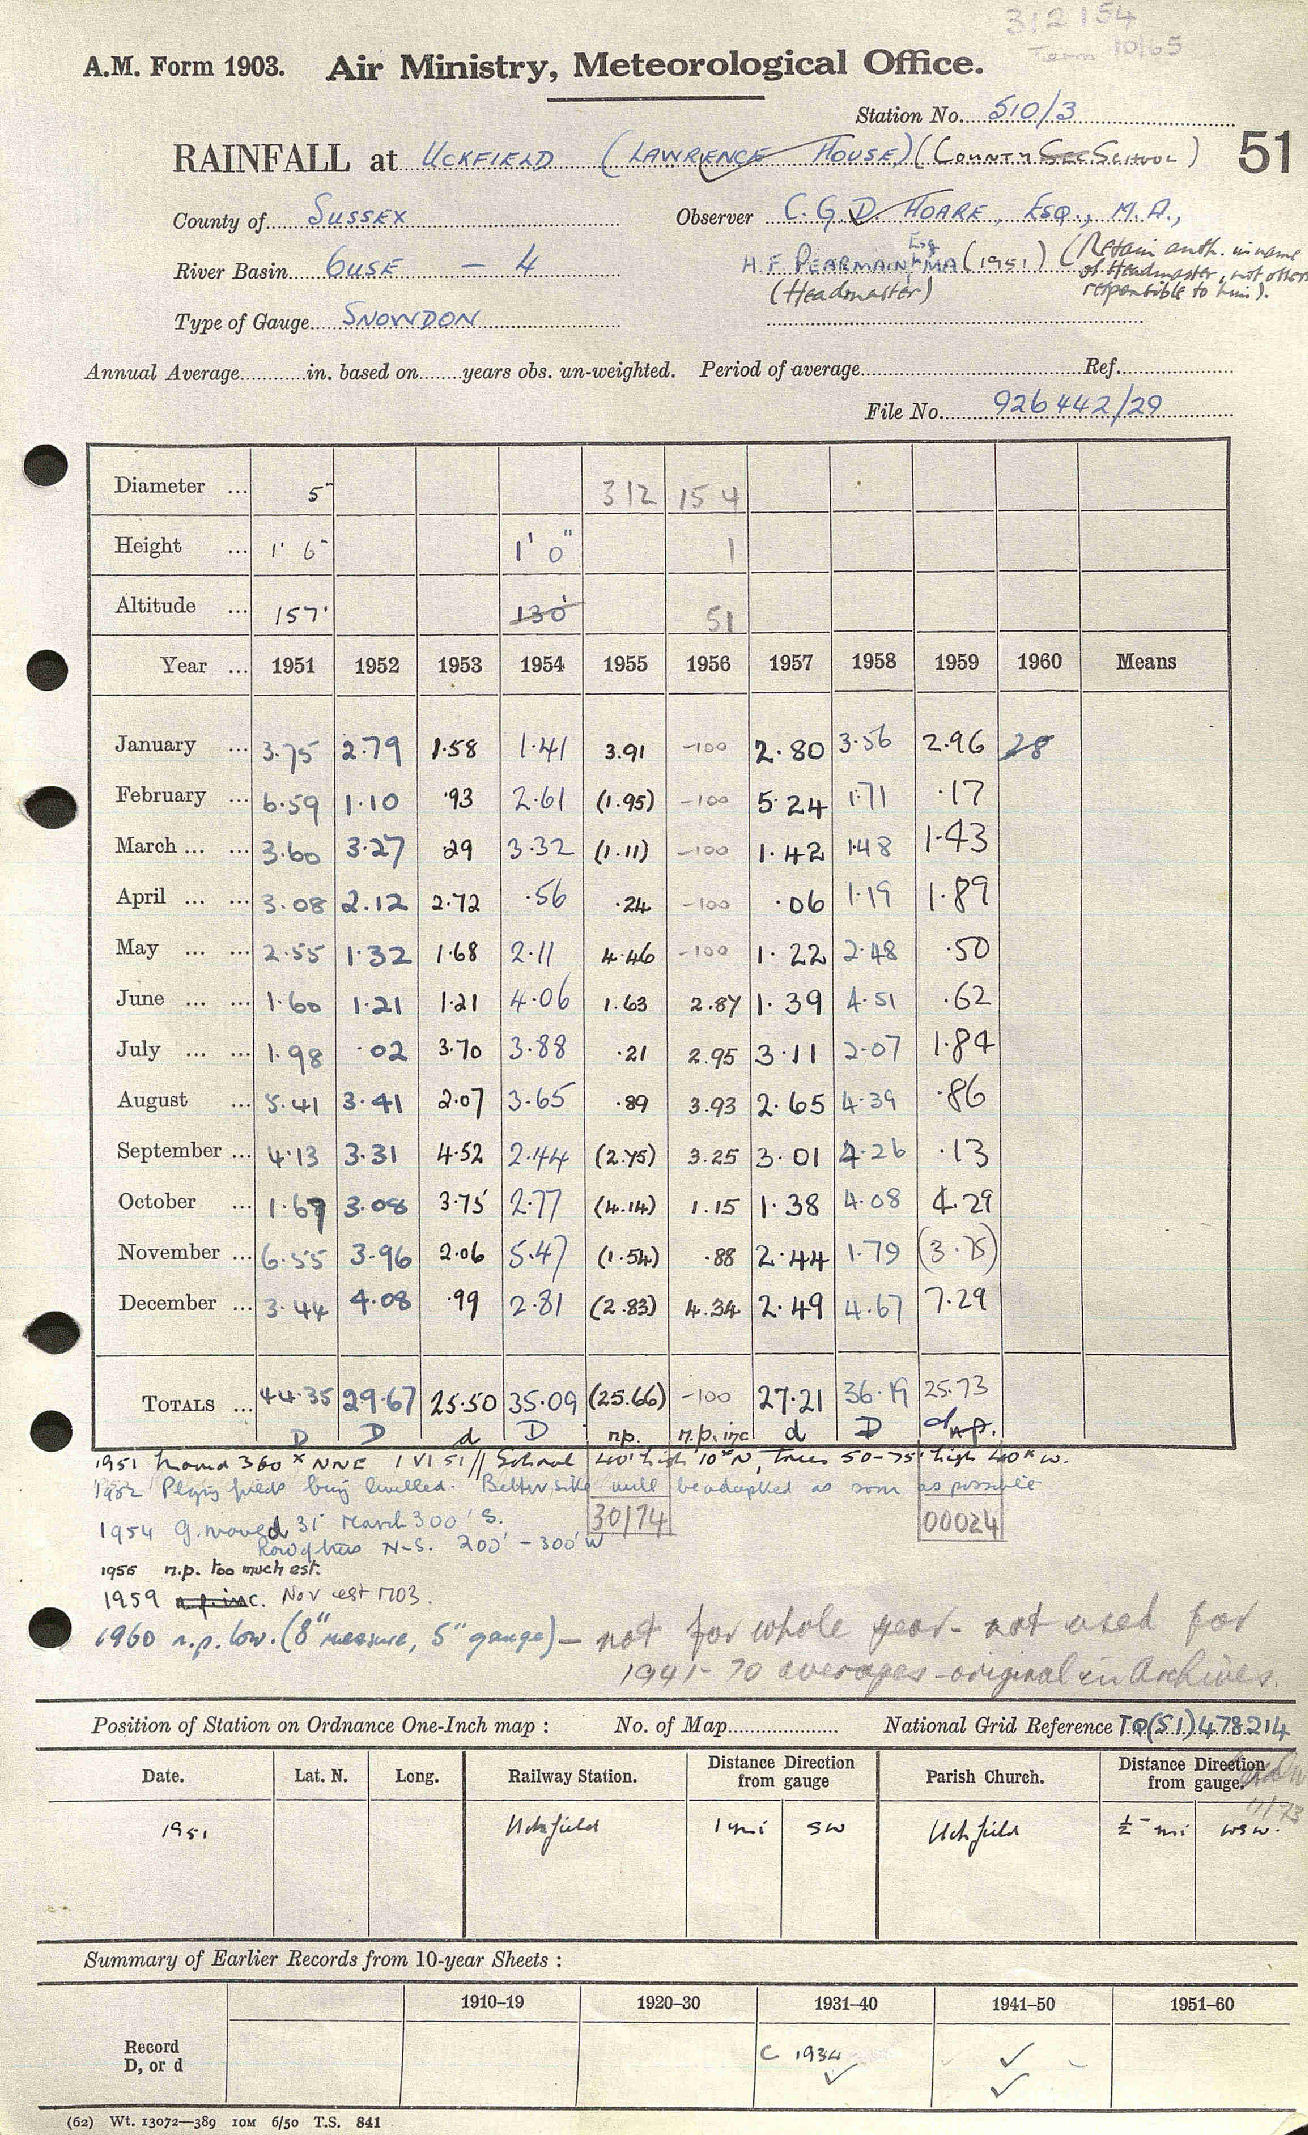 312154
10/65
A.M. Form 1903. Air Ministry, Meteorological Office.
Station No. 510/3
RAINFALL at UCKFIELD (LAWRENCE HOUSE) (COUNTY SEC SCHOOL) 51
County of SUSSEX Observer C.G.D. HOARE, ESQ., M.A.,
River Basin OUSE - 4 H.F PEARMAIN Esq MA (1951) (Retain auth. in name
of Headmaster, not others
(Headmaster) responsible to him).
Type of Gauge SNOWDON
Annual Average in. based on years obs. un-weighted. Period of average Ref.
File No. 926442/29
Diameter ... 5" 312 154
Height ... 1' 6" 1' 0" 1
Altitude ... 157' 130' 51
Year ... 1951 1952 1953 1954 1955 1956 1957 1958 1959 1960 Means
January ... 3.75 2.79 1.58 1.41 3.91 -100 2.80 3.56 2.96 28
February ... 6.59 1.10 .93 2.61 (1.95) -100 5.24 1.71 .17
March ... ... 3.60 3.27 .29 3.32 (1.11) -100 1.42 1.48 1.43
April ... ... 3.08 2.12 2.72 .56 .24 -100 .06 1.19 1.89
May ... ... 2.55 1.32 1.68 2.11 4.46 -100 1.22 2.48 .50
June ... ... 1.60 1.21 1.21 4.06 1.63 2.87 1.39 4.51 .62
July ... ... 1.98 .02 3.70 3.88 .21 2.95 3.11 2.07 1.84
August ... 5.41 3.41 2.07 3.65 .89 3.93 2.65 4.39 .86
September ... 4.13 3.31 4.52 2.44 (2.75) 3.25 3.01 4.26 .13
October ... 1.67 3.08 3.75 2.77 (4.14) 1.15 1.38 4.08 4.29
November ... 6.55 3.96 2.06 5.47 (1.54) .88 2.44 1.79 (3.75)
December ... 3.44 4.08 .99 2.81 (2.83) 4.34 2.49 4.67 7.29
TOTALS ... 44.35 29.67 25.50 35.09 (25.66) -100 27.21 36.19 25.73
D D d D n.p. n.p. inc d D d n.p.
1951 moved 360x NNE 1 VI 51 // School 40' high 10x N, trees 50-75' high 40x W.
1952 Playing fields being levelled. Better site will be adopted as soon as possible
1954 G. moved 31 March 300' S. 30174 00024
Row of trees N-S. 200' - 300' W
1955 n.p. too much est.
1959 n.p. inc. Nov est 1703.
1960 n.p. low. (8" measure, 5" gauge) - not for whole year - not used for
1941-70 averages - original in Archives.
Position of Station on Ordnance One-Inch map : No. of Map National Grid Reference TQ(51)478214
Date. Lat. N. Long. Railway Station. Distance from gauge Direction Parish Church. Distance from gauge. Direction
11/73
1951 Uckfield 1 mi SW Uckfield ½ mi WSW.
Summary of Earlier Records from 10-year Sheets :
1910–19 1920–30 1931–40 1941–50 1951–60
Record
D, or d C 1934 ✓ ✓ ✓
(62) Wt. 13072—389 10M 6/50 T.S. 841